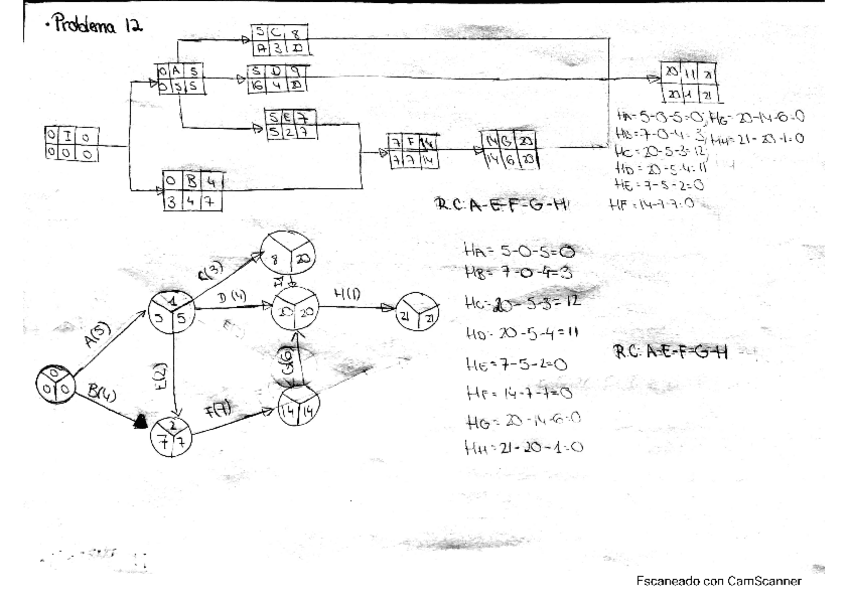 · Problema 12
5 C 8
A 3 20
0 A 5
0 5 5
5 D 9
16 4 20
20 11 21
20 1 21
5 E 7
5 2 7
0 I 0
0 0 0
7 F 14
7 7 14
14 G 20
14 6 20
0 B 4
3 4 7
HA=5-0-5=0; HG=20-14-6=0
HB=7-0-4=3; HH=21-20-1=0
HC=20-5-3=12;
HD=20-5-4=11
HE=7-5-2=0
HF=14-7-7=0
R.C: A-E-F-G-H
8 20
C(3)
1
5 5
D (4)
20 20
H(1)
21 21
A(5)
E(2)
G(6)
0
0 0
B(4)
F(7)
14 14
2
7 7
HA= 5-0-5=0
HB= 7-0-4=3
HC=20-5-3=12
HD=20-5-4=11
HE=7-5-2=0
HF= 14-7-7=0
HG= 20-14-6=0
HH=21-20-1=0
R.C: A-E-F-G-H
Escaneado con CamScanner